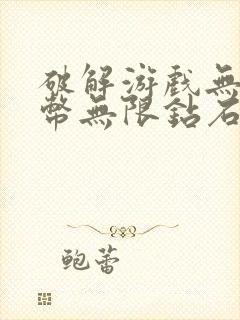 破解游戲無
幣無限鉆石
鮑蕾